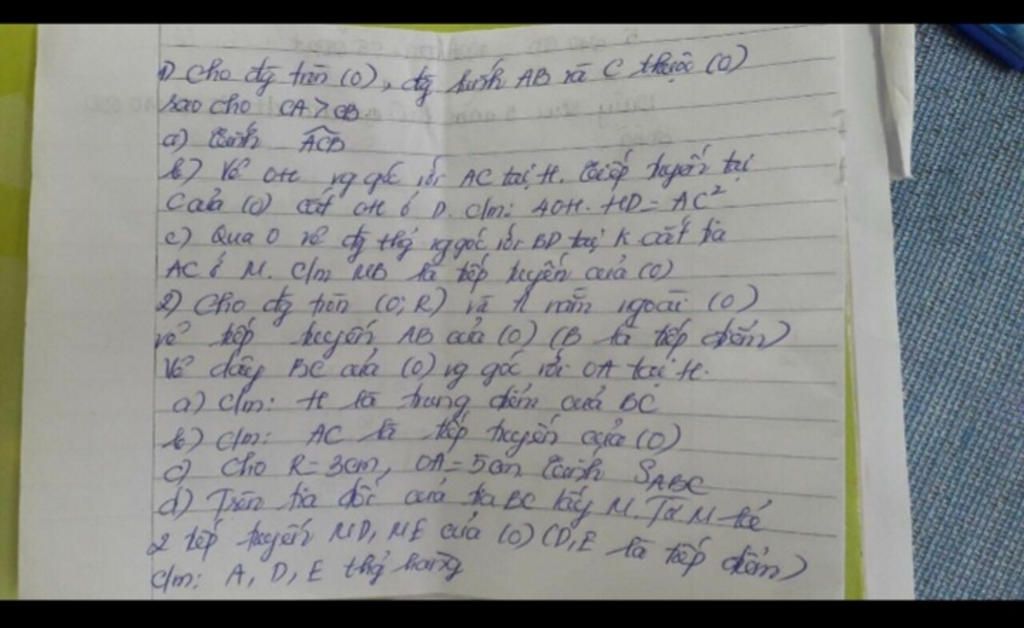 1) Cho đg tròn (O), đg kính AB và C thuộc (O)
sao cho CA > CB
a) Tính ACB
b) Vẽ OH vg góc với AC tại H. Tiếp tuyến tại
C của (O) cắt OH ở D. C/m: 4OH.HD = AC²
c) Qua O vẽ đg thg vg góc với BD tại K cắt tia
AC ở M. C/m MB là tiếp tuyến của (O)
2) Cho đg tròn (O; R) và A nằm ngoài (O)
vẽ tiếp tuyến AB của (O) (B là tiếp điểm)
Vẽ dây BC của (O) vg góc với OA tại H.
a) C/m: H là trung điểm của BC
b) C/m: AC là tiếp tuyến của (O)
c) Cho R = 3cm, OA = 5cm Tính SABC
d) Trên tia đối của tia BC lấy M. Từ M kẻ
2 tiếp tuyến MD, ME của (O) (D, E là tiếp điểm)
C/m: A, D, E thg hàng